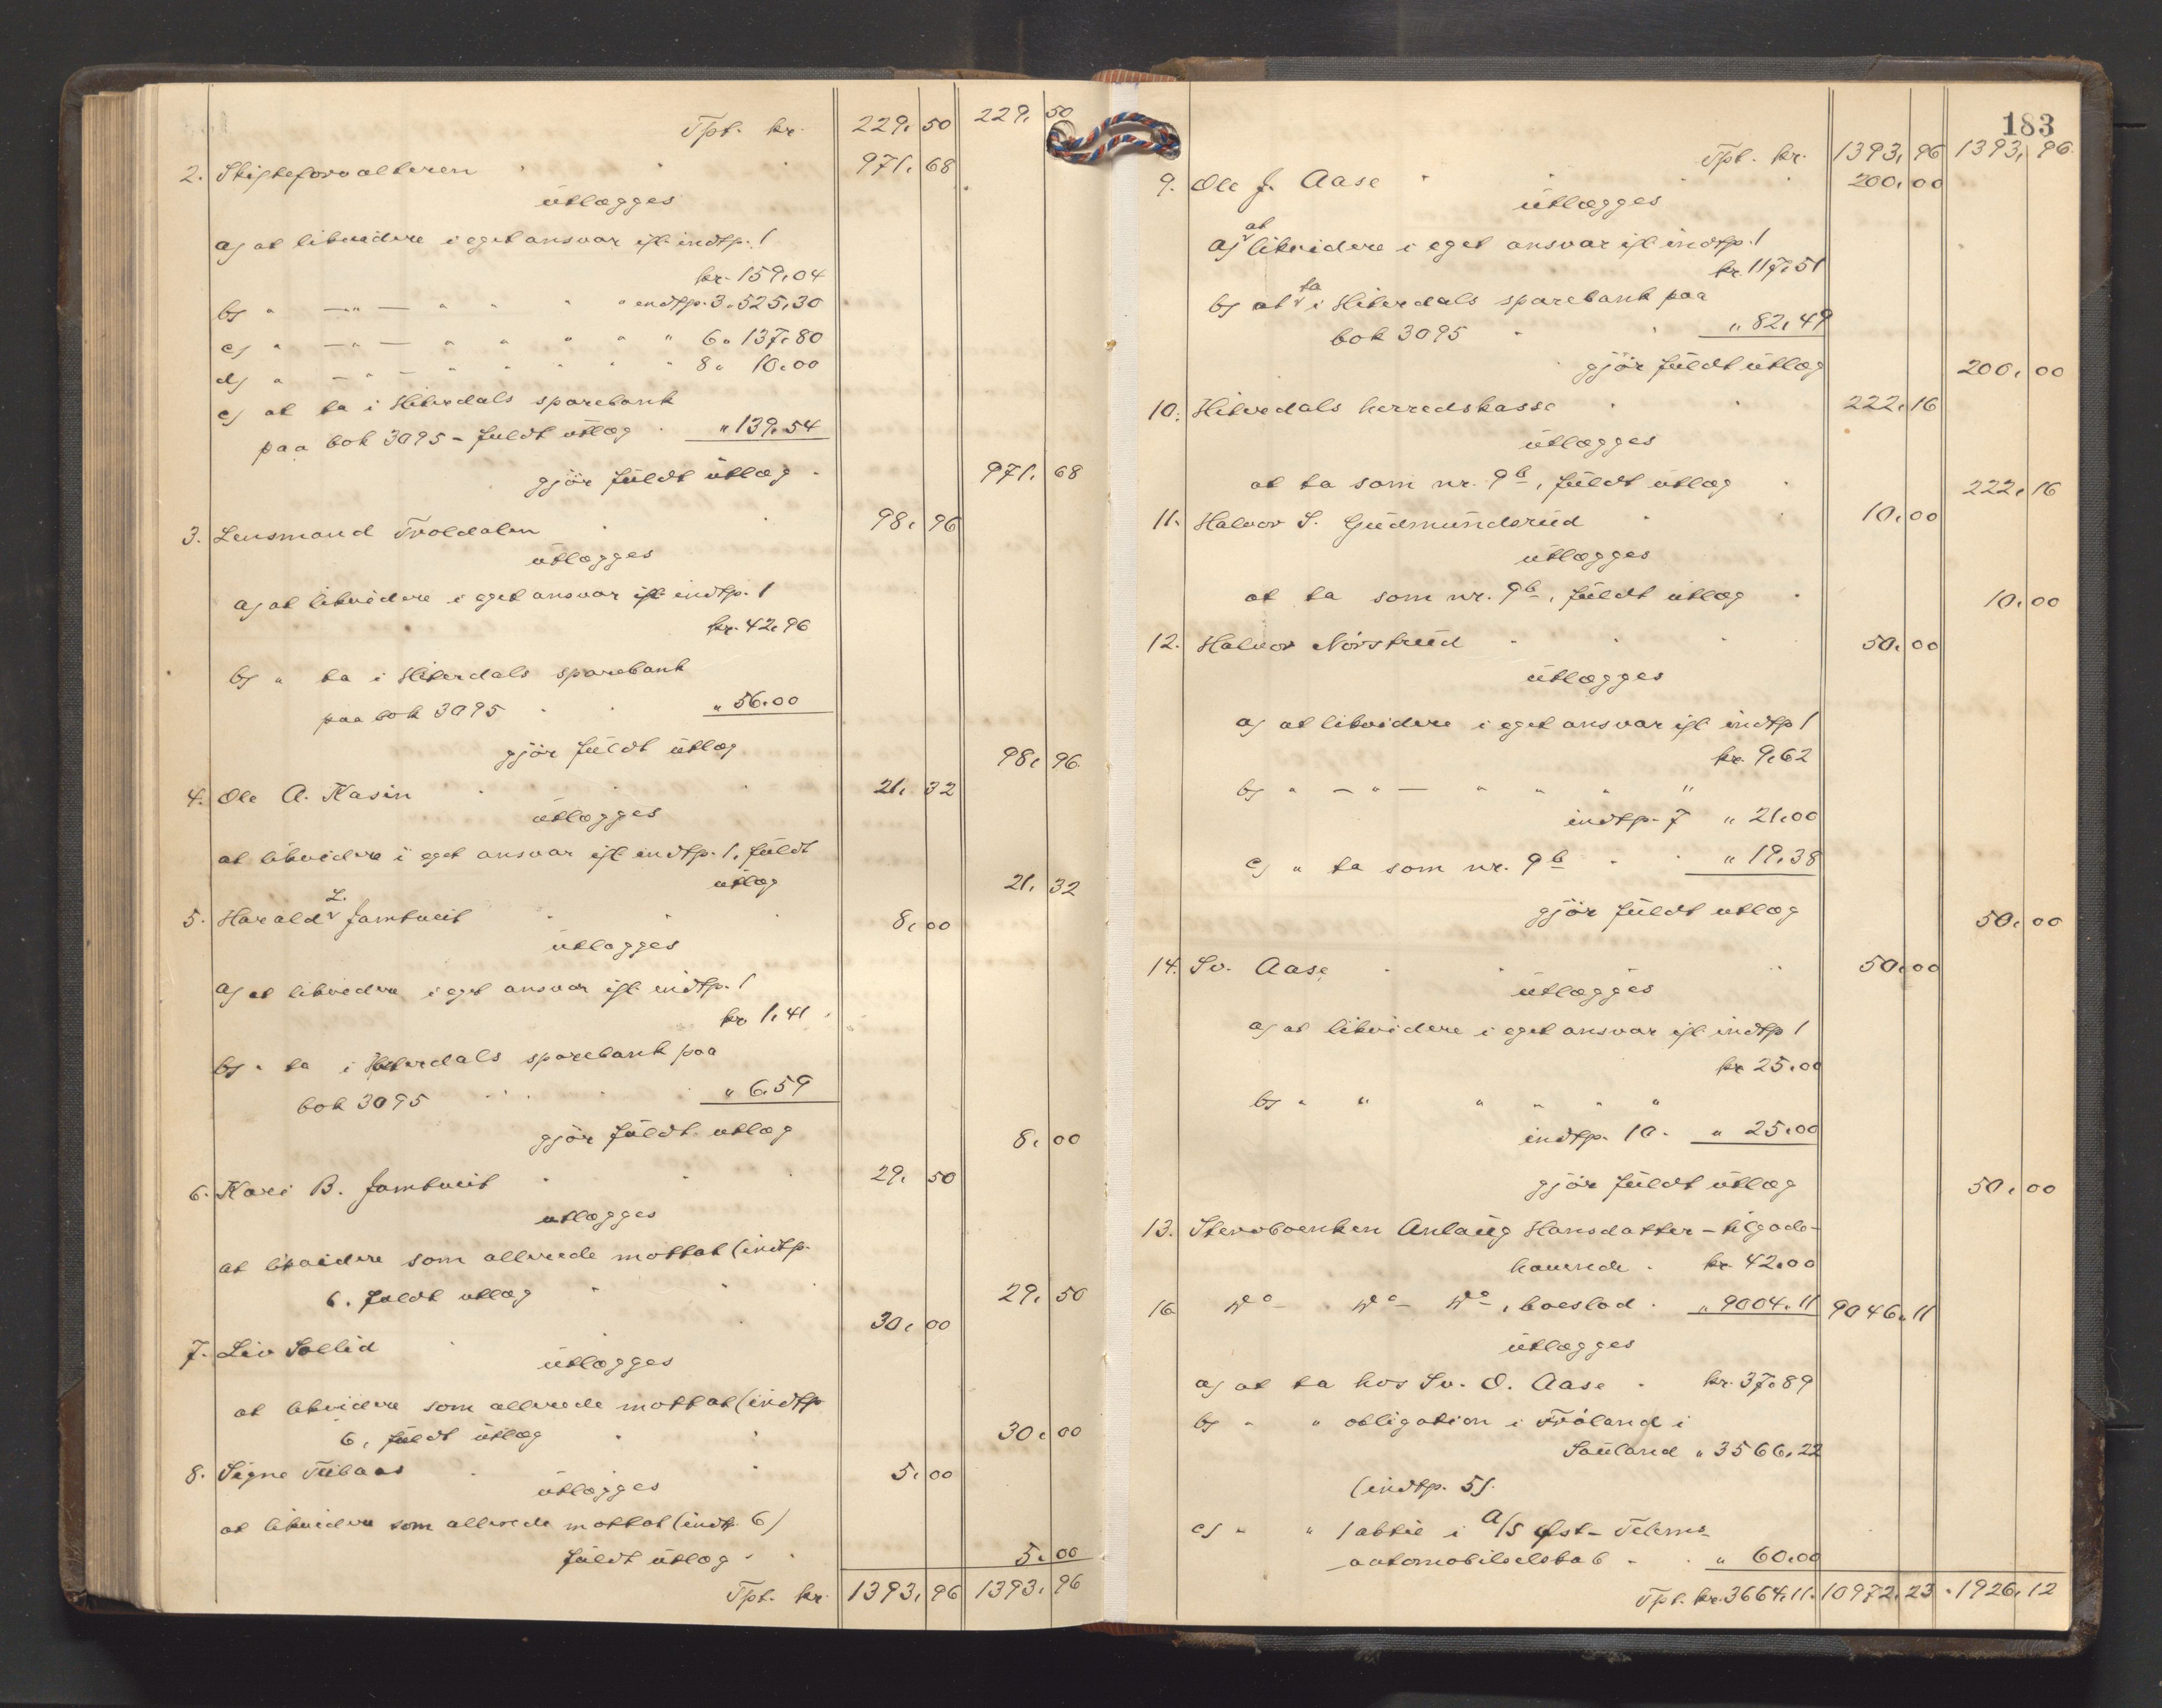 Tpt. kr. 229,50 229,50
2. Skifteforvalteren 971,68
utlægges
a) at likvidere i eget ansvar ifl. indtp. 1
kr. 159,04
b) " —"— " " " " indtp. 3 " 525,30
c) " —"— " " " " " 6 " 137,80
d) " —"— " " " " " 8 " 10,00
e) at ta i Hiterdals sparebank
paa bok 3095 - fuldt utlæg " 139,54
gjør fuldt utlæg 971,68
3. Lensmand Troldalen 98,96
utlægges
a) at likvidere i eget ansvar ifl. indtp. 1
kr. 42,96
b) " ta i Hiterdals sparebank
paa bok 3095 " 56,00
gjør fuldt utlæg 98,96
4. Ole A. Kasin 21,32
utlægges
at likvidere i eget ansvar ifl. indtp. 1, fuldt
utlæg 21,32
5. Harald L. Jamtveit 8,00
utlægges
a) at likvidere i eget ansvar ifl. indtp. 1
kr. 1,41
b) " ta i Hiterdals sparebank paa
bok 3095 " 6,59
gjør fuldt utlæg 8,00
6. Kari B. Jamtveit 29,50
utlægges
at likvidere som allerede mottat (indtp.
6. fuldt utlæg 29,50
7. Liv Sollid 30,00
utlægges
at likvidere som allerede mottat (indtp
6, fuldt utlæg 30,00
8. Signe 5,00
utlægges
at likvidere som allerede mottat (indtp. 6)
fuldt utlæg 5,00
Tpt. kr. 1393,96 1393,96
183
Tpt. kr. 1393,96 1393,96
9. Ole J. Aase 200,00
utlægges
a) at likvidere i eget ansvar ifl. indtp. 1
kr. 117,51
b) at ta i Hiterdals sparebank paa
bok 3095 " 82,49
gjør fuldt utlæg 200,00
10. Hiterdals herredskasse 222,16
utlægges
at ta som nr. 9b, fuldt utlæg 222,16
11. Halvor S. Gudmundsrud 10,00
utlægges
at ta som nr. 9b, fuldt utlæg 10,00
12. Halvor Nørstrud 50,00
utlægges
a) at likvidere i eget ansvar ifl. indtp 1
kr. 9,62
b) " —"— " " " "
indtp. 7 " 21,00
c) " ta som nr. 9b " 19,38
gjør fuldt utlæg 50,00
14. Sv. Aase 50,00
utlægges
a) at likvidere i eget ansvar ifl. indtp 1
kr 25,00
b) " " " " " "
indtp. 10. " 25,00
gjør fuldt utlæg 50,00
13. Stervboenken Anlaug Hansdatter - tilgode-
havende kr. 42,00
16 do do do, boeslod " 9004,11 9046,11
utlægges
a) at ta hos Sv. O. Aase kr. 37,89
b) " " obligation i Frøland i
Sauland " 3566,22
(indtp. 5).
c) " " 1 aktie i A/S Øst-Telem-
automobilselskab " 60,00
Tpt. kr. 3664,11. 10972,23 . 1926,12